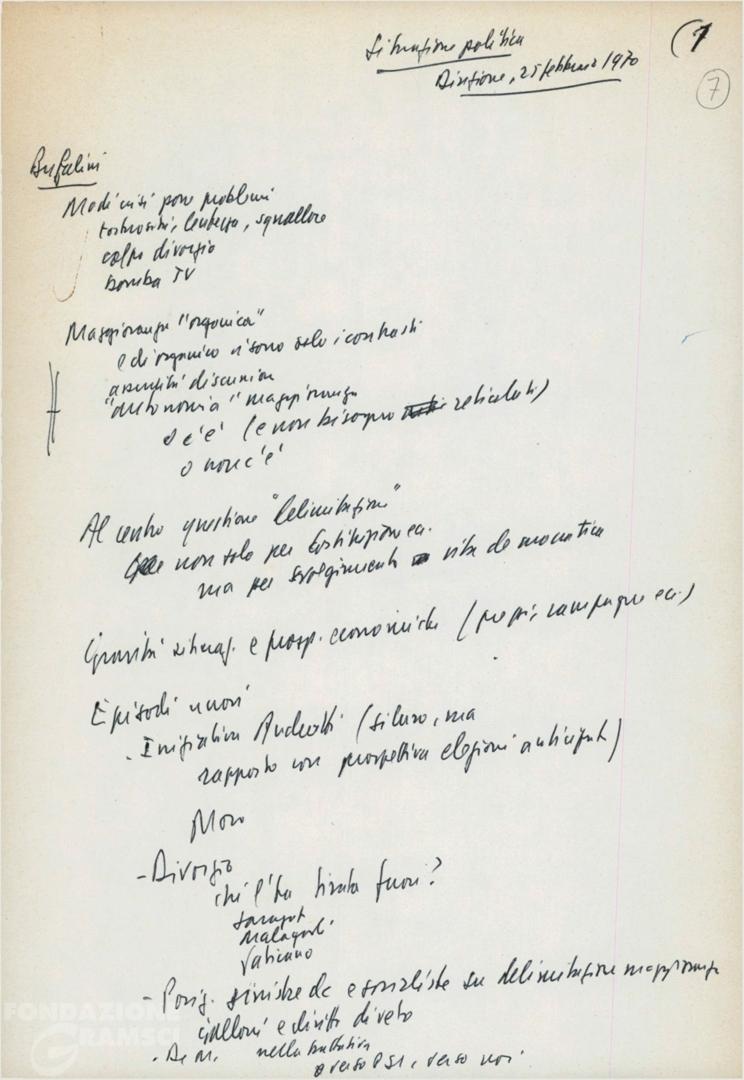 Situazione politica
(7
Direzione, 25 febbraio 1970
7
Bufalini
Modi crisi pone problemi
tortuosità, lentezza, squallore
colpo divorzio
bomba TV
Maggioranza "organica"
e di organico vi sono solo i contrasti
assurdità discussion
"autonomia" maggioranza
o c'è (e non bisogno reticolati)
o non c'è
Al centro questione "delimitazione"
non solo per Costituzione ecc.
ma per svolgimento vita democratica
Gravità situaz. e prosp. economiche (prezzi, campagne ecc.)
Episodi nuovi
- Iniziativa Andreotti (siluro, ma
rapporto con prospettiva elezioni anticipate)
Moro
- Divorzio
chi l'ha tirata fuori?
Saragat
Malagodi
Vaticano
- Posiz. sinistre dc e socialiste su delimitazione maggioranza
Galloni e diritto di veto
- De M. nella trattativa
verso PSI, verso noi
FONDAZIONE
GRAMSCI